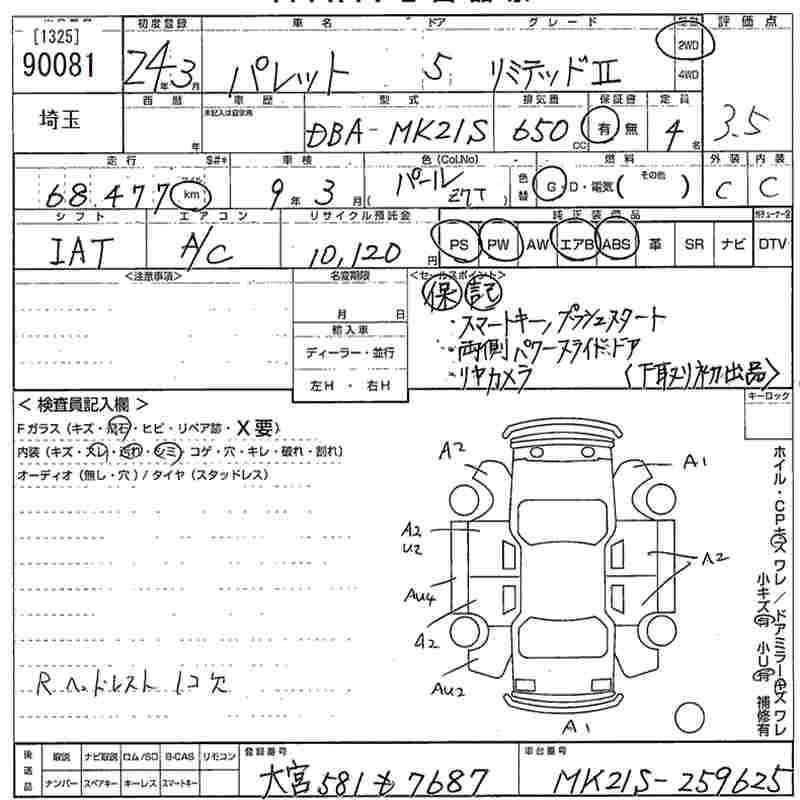 [1325]
90081
初度登録 車名 ドア グレード 評価点
24年3月 パレット 5 リミテッドⅡ 2WD
4WD
埼玉 3.5
西暦 車歴 型式 排気量 保証書 定員
年 未記入は自家用 DBA-MK21S 650cc 有 無 4名
走行 S#* 車検 色(Col.No) 燃料 外装 内装
68,477 マイル km 9年3月 (パール Z7T) 色替 G・D・電気(その他) C C
シフト エアコン リサイクル預託金 純正装備品
IAT A/C 10,120円 PS PW AW エアB ABS 革 SR ナビ DTV
<注意事項> 名変期限 <セールスポイント>
月 日
保 記
輸入車
・スマートキー, プッシュスタート
ディーラー・並行
・両側パワースライドドア
左H・右H
・リヤカメラ 〈下取り初出品〉
< 検査員記入欄 > キーロック
Fガラス(キズ・飛石・ヒビ・リペア跡・X要)
内装(キズ・スレ・汚れ・シミ・コゲ・穴・キレ・破れ・割れ)
オーディオ(無し・穴)/タイヤ(スタッドレス)
A2 A1
A2
U2
A2
AU4
A2
AU2
A1
ホイル・CPキズ ワレ/ドアミラーキズ ワレ
小キズ有 小U有 補修有
R ヘッドレスト 1コ欠
後送品 取説 ナビ取説 ロム/SD B-CAS リモコン 登録番号 車台番号
ナンバー スペアキー キーレス スマートキー 大宮581も7687 MK21S-259625